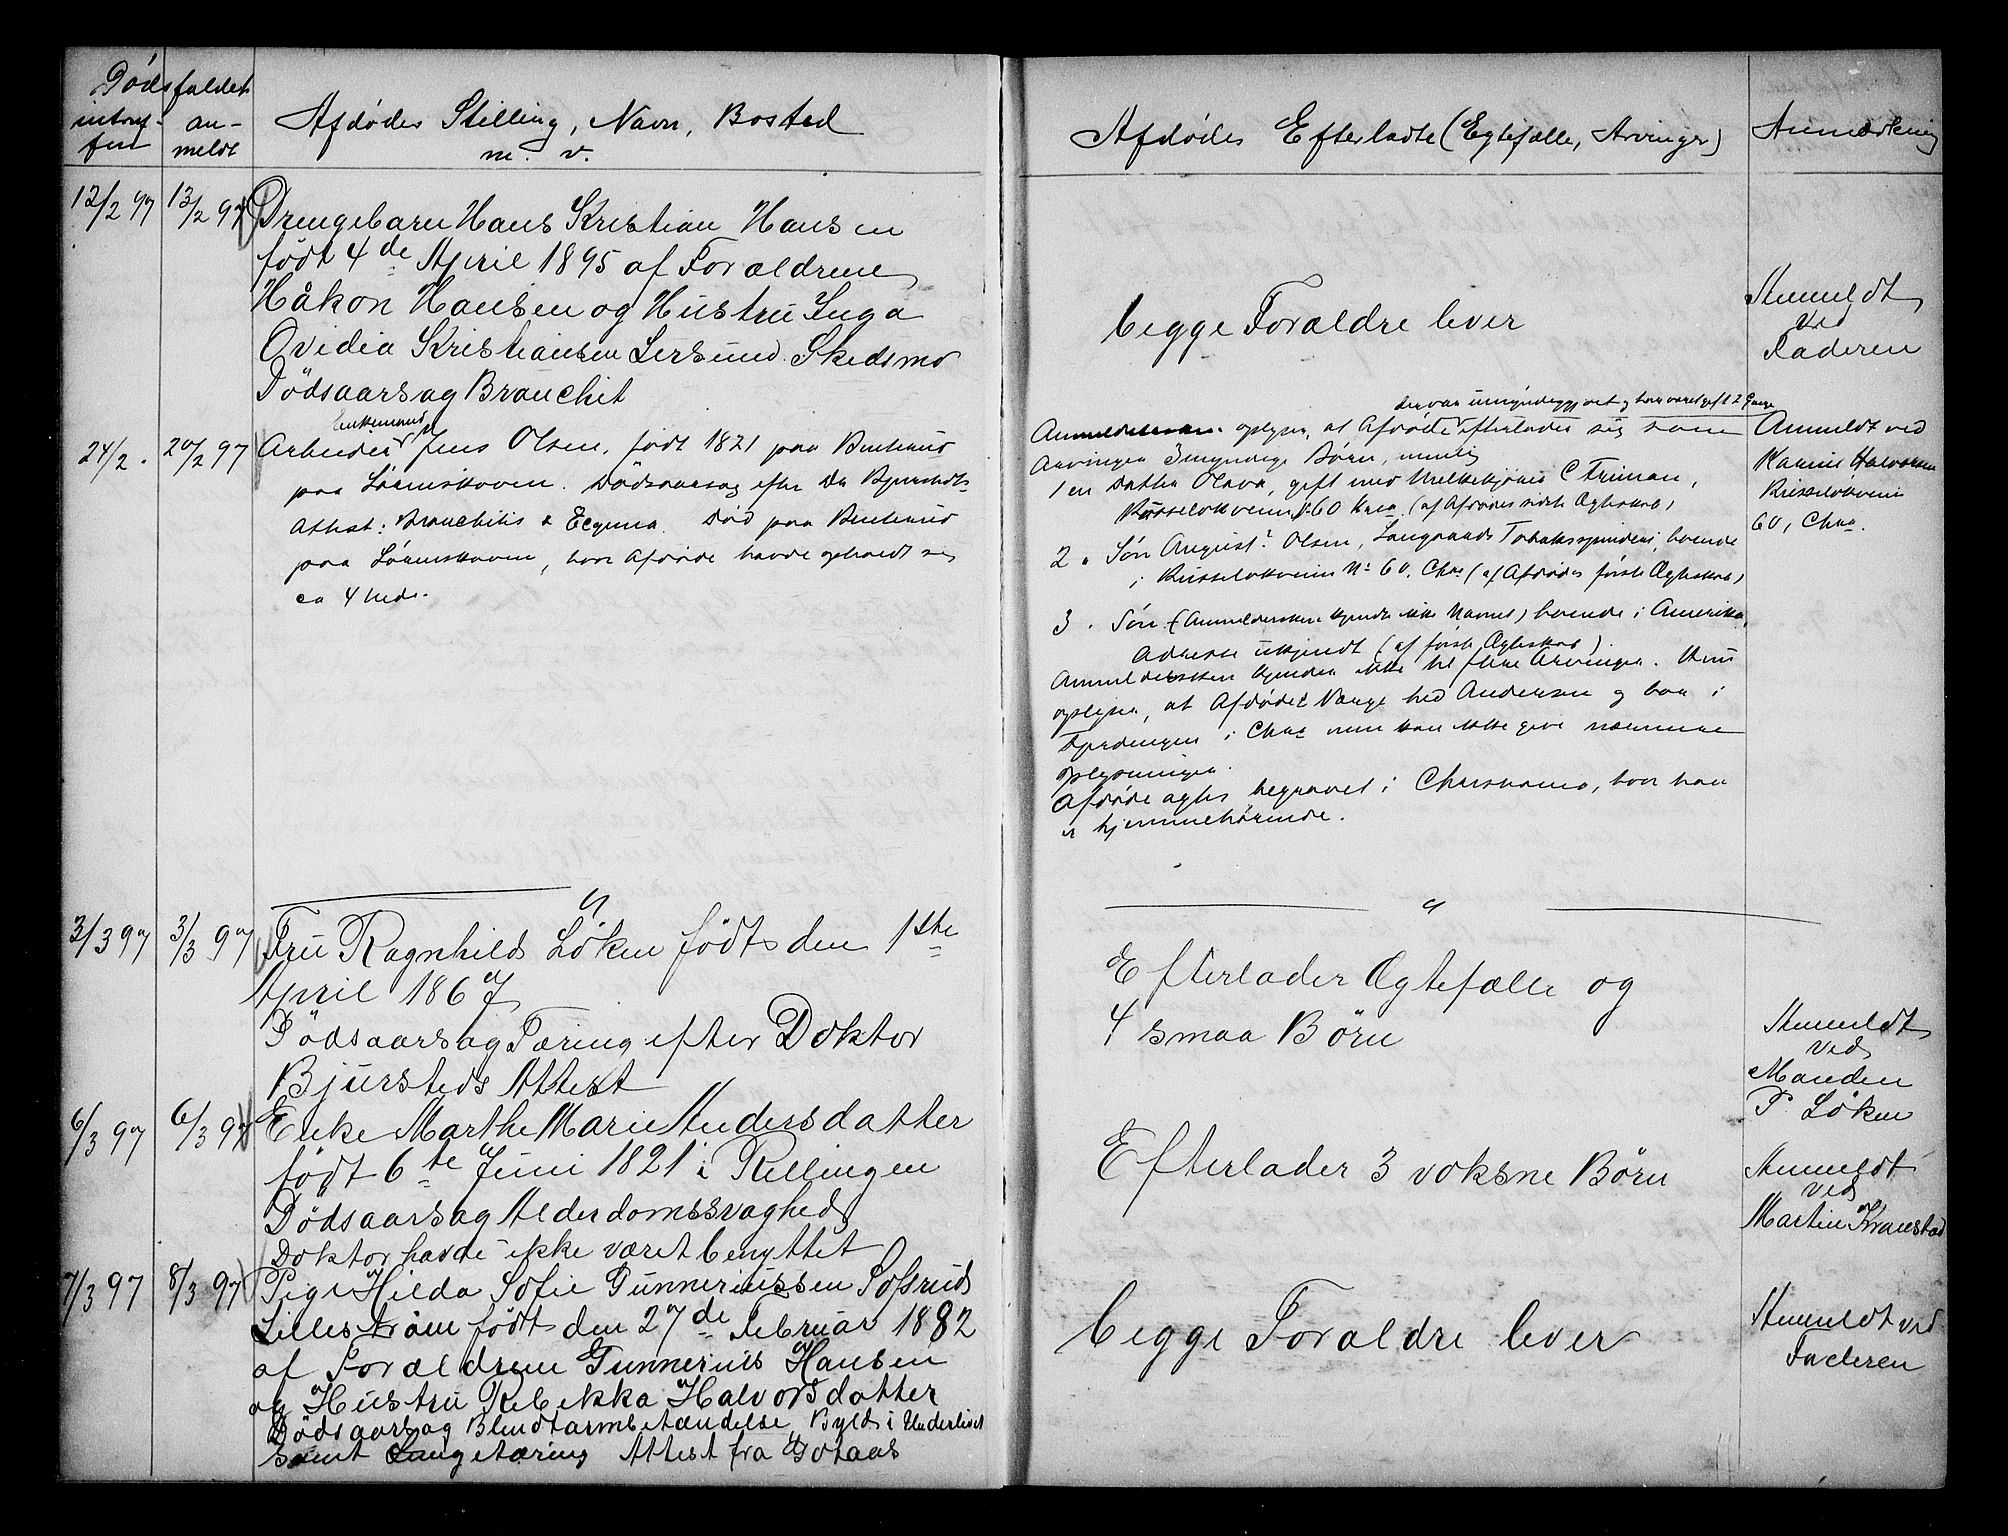 Dødsfaldet
intruf- an-
fen meldt
Afdødes Stilling, Navn, Bosted
m. v.
Afdødes Efterladte (Egtefælle, Arvinger)
Anmærkning
12/2 97 13/2 97 Drengebarn Hans Kristian Hansen
født 4de April 1895 af Forældrene
Håkon Hansen og Hustru Inga
Ovidia Kristiansen Lersund. Skedsmo
Dødsaarsag Bronchit
begge Forældre lever
Anmeldt
ved
Faderen
Enkemand
24/2. 26/2 97 Arbeider Jens Olsen, født 1821 paa
paa Lørenskoven. Dødsaarsag efter Dr Bjursteds
Attest: Bronchitis & Ecgema. Død paa
paa Lørenskoven, hvor Afdøde havde opholdt sig
ca 4 Uede.
der var umyndiggjort og har været gift 2 Gange
Anmeldersken oplyser, at Afdøde efterlader sig som
Arvinger 3 myndige Børn, nemlig
1 en Datter Olava, gift med C Friman,
60 Kra. (af Afdødes sidste Ægteskab)
2. Søn August? Olsen, Langaards Tobaksspinderi, boende
i No 60, Chra (af Afdødes første Ægteskab)
3. Søn (Anmeldersken kjender ikke Navnet) boende i Amerika,
Adresse ukjendt (af første Ægteskab).
Anmeldersken kjender ikke til flere Arvinger. Hun
oplyser, at Afdødes Værge hed Andersen og bor i
i Chra men kan ikke give nærmere
oplysninger.
Afdøde agtes begravet i Christiania, hvor han
er hjemmehørende.
Anmeldt ved
Karine Halvorsen
60, Chra.
3/3 97 3/3 97 Fru Ragnhild Løken født den 1ste
April 1867
Dødsaarsag Tæring efter Doktor
Bjursteds Attest
Efterlader Ægtefælle og
4 smaa Børn
Anmeldt
ved
Manden
P. Løken
6/3 97 6/3 97 Enke Marthe Marie Andersdatter
født 6te Juni 1821 i Rellingen
Dødsaarsag Alderdomssvaghed
Doktor havde ikke været benyttet
Efterlader 3 voksne Børn
Anmeldt
ved
Martin Kranstad
7/3 97 8/3 97 Pige Hilda Sofie Gunneriussen Sofsrud
Lillestrøm født den 27de Februar 1882
af Forældrene Gunnerius Hansen
og Hustru Rebekka Halvorsdatter
Dødsaarsag Blindtarmbetændelse, Byld i Underlivet
samt Lungetæring Attest fra Gotaas
begge Forældre lever
Anmeldt ved
Faderen